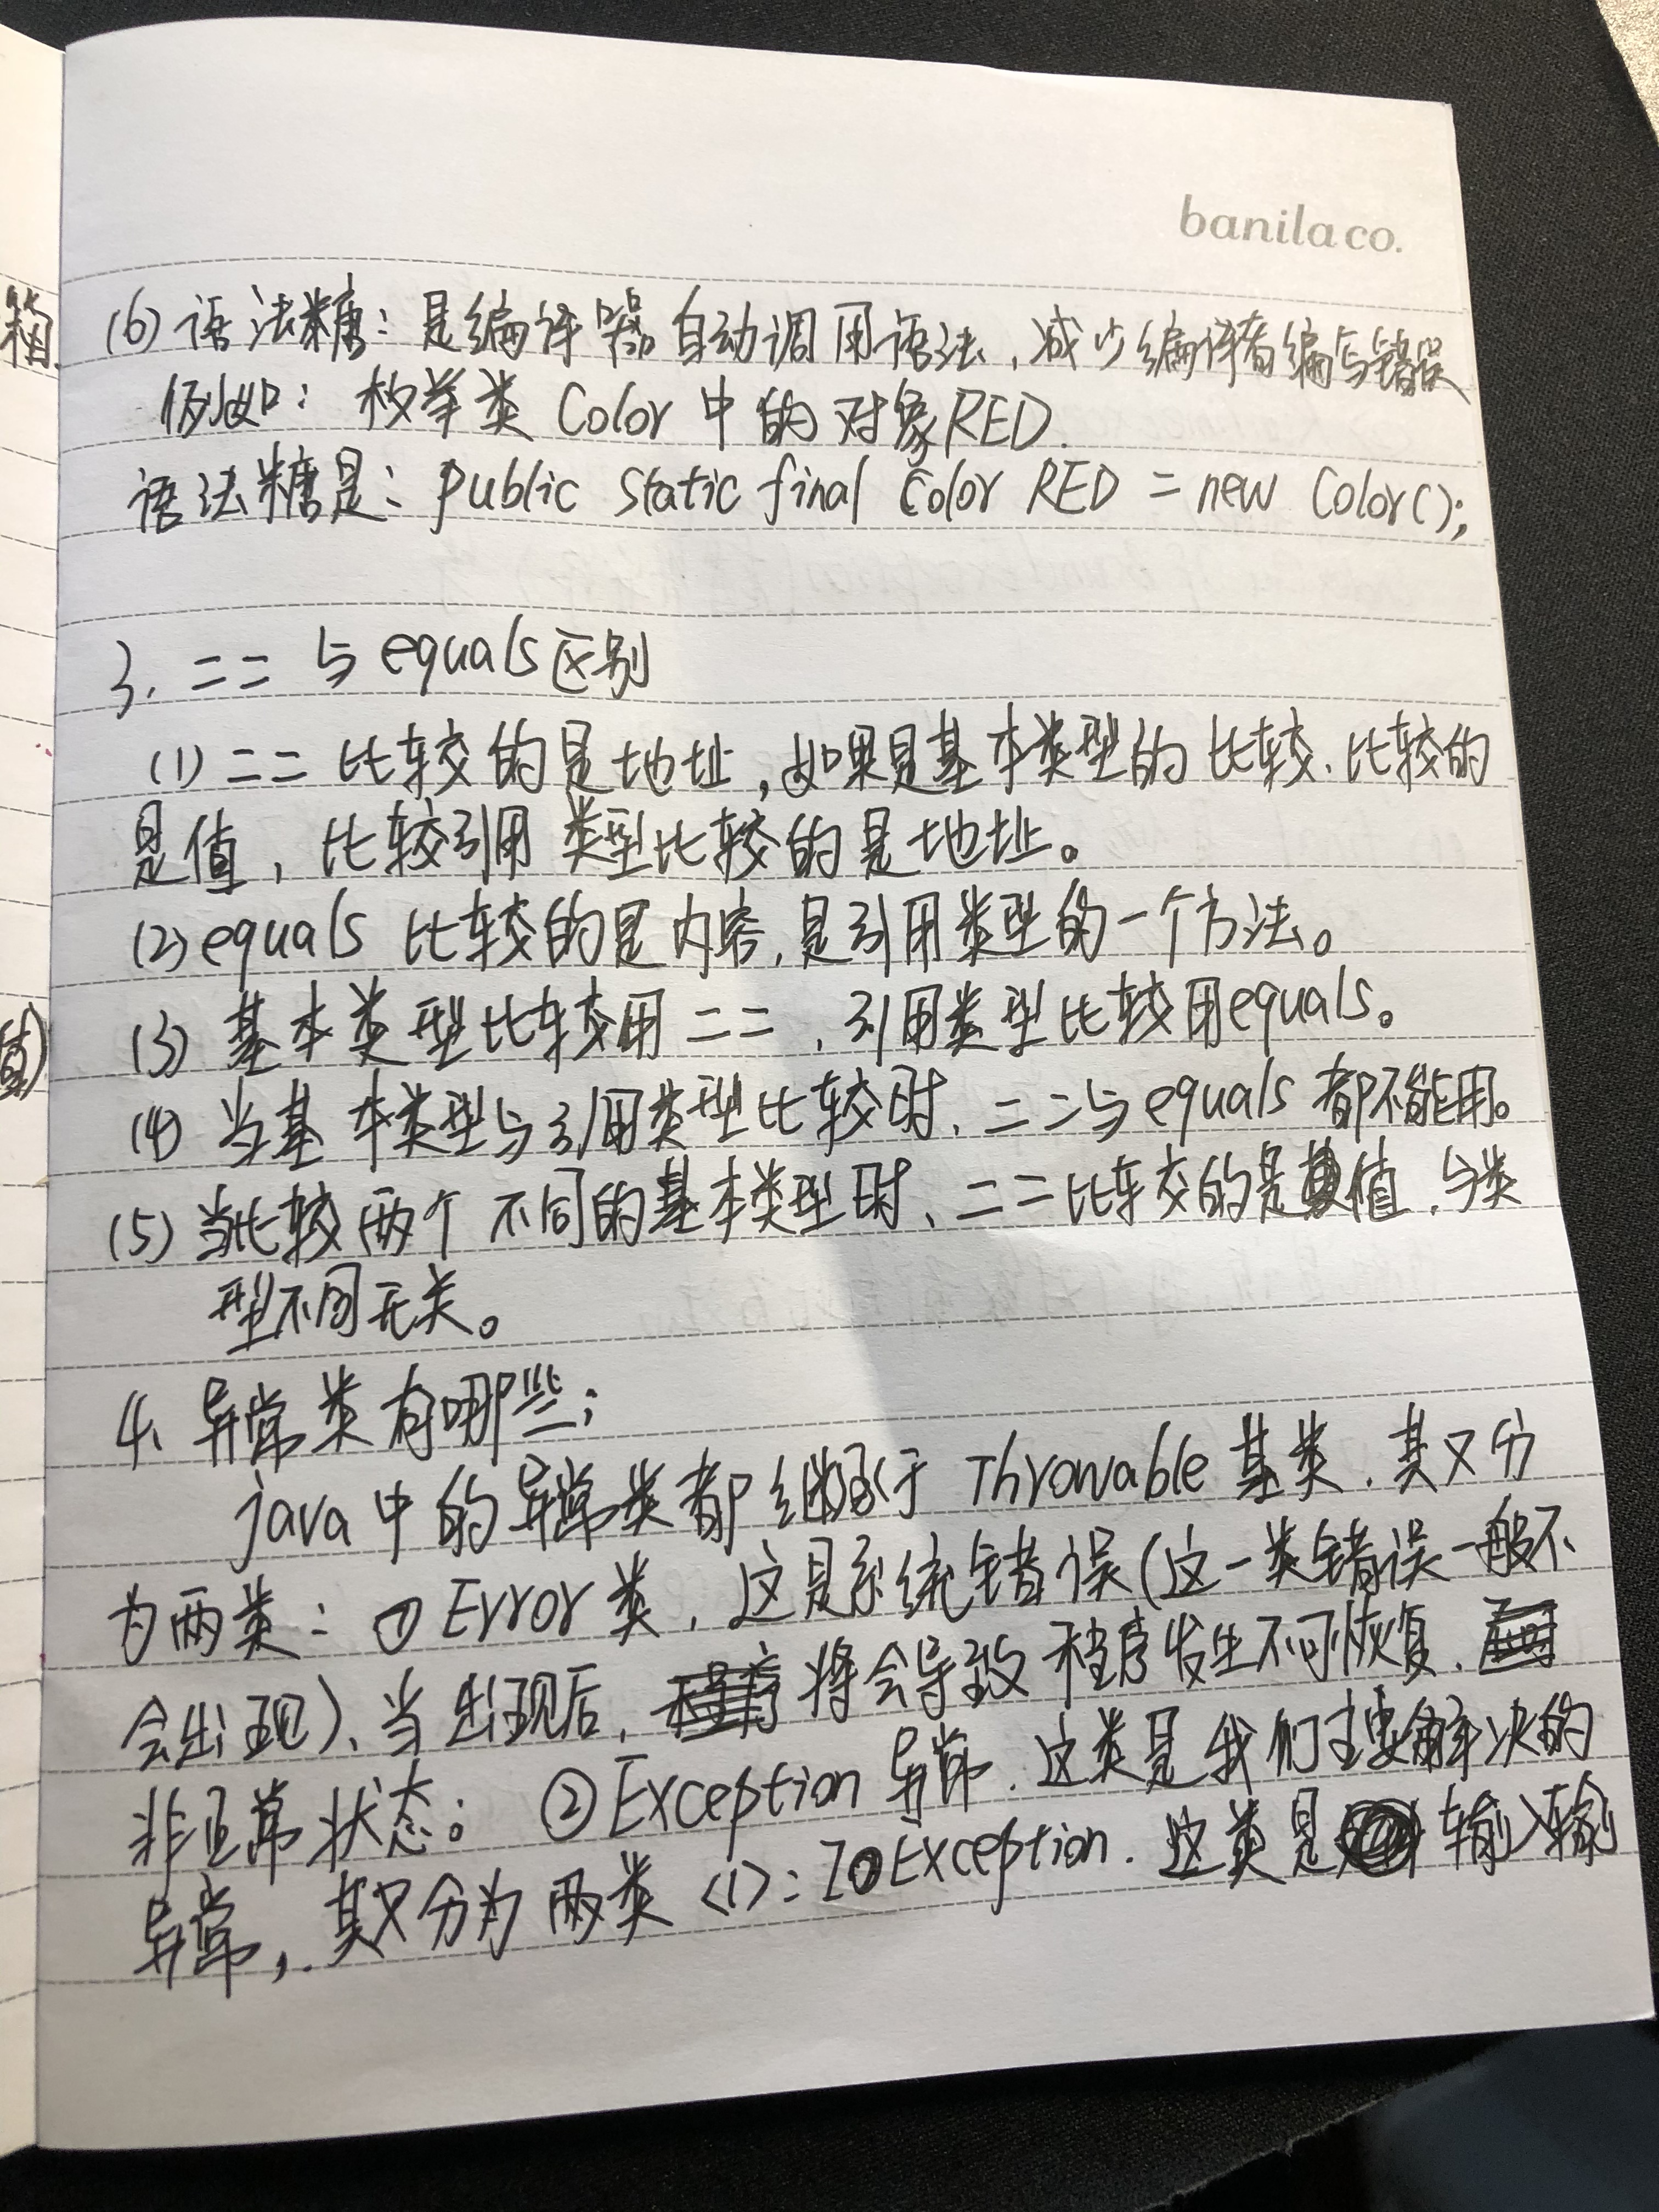 banila co.
(6) 语法糖：是编译器自动调用语法，减少编译者编写错误
例如：枚举类 Color 中的对象RED.
语法糖是：public static final Color RED = new Color();
3. == 与 equals区别
(1) == 比较的是地址，如果是基本类型的比较、比较的
是值，比较引用类型比较的是地址。
(2) equals 比较的是内容，是引用类型的一个方法。
(3) 基本类型比较用 ==，引用类型比较用equals。
(4) 当基本类型与引用类型比较时、==与equals都不能用。
(5) 当比较两个不同的基本类型时、==比较的是值，与类
型不同无关。
4、异常类有哪些；
java中的异常类都继承于 Throwable 基类，其又分
为两类：① Error类，这是系统错误(这一类错误一般不
会出现)、当出现后，将会导致程序发生不可恢复、
非正常状态。 ② Exception 异常，这类是我们主要解决的
异常，其又分为两类 <1>: IOException. 这类是输入输
箱
值)